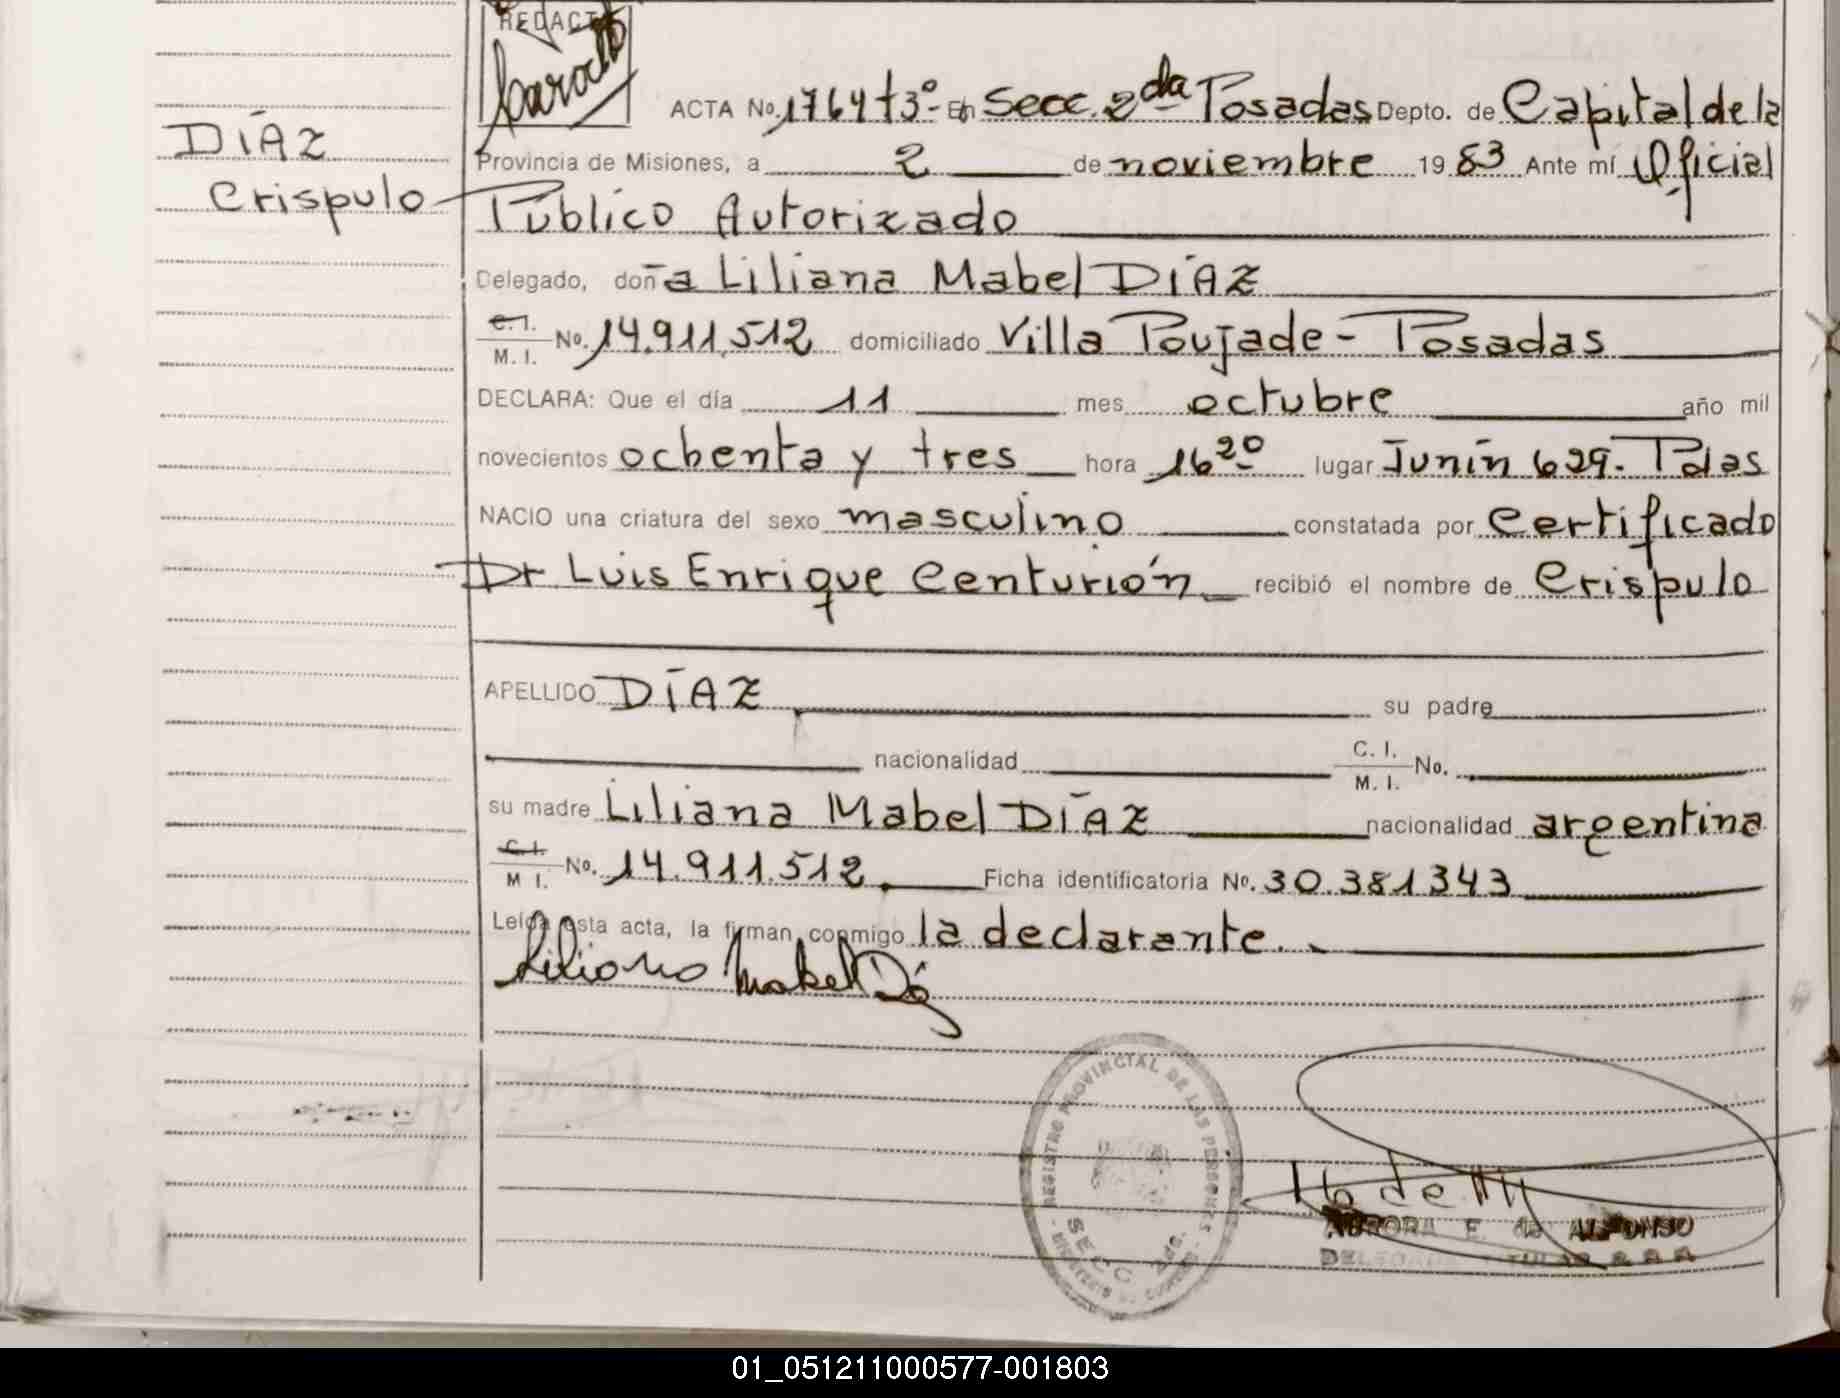 REDACTÓ
ACTA No. 1764 t3º- En Secc. 2da Posadas Depto. de Capital de la
DÍAZ
Crispulo
Provincia de Misiones, a 2 de noviembre 1983 Ante mí Oficial
Público Autorizado
Delegado, doña Liliana Mabel DÍAZ
C. I.
M. I. No. 14.911.512 domiciliado Villa Poujade - Posadas
DECLARA: Que el día 11 mes octubre año mil
novecientos ochenta y tres hora 16 20 lugar Junín 629 - Pdas
NACIO una criatura del sexo masculino constatada por Certificado
Dr Luis Enrique Centurión recibió el nombre de Crispulo
APELLIDO DÍAZ su padre
nacionalidad C. I.
M. I. No.
su madre Liliana Mabel DÍAZ nacionalidad argentina
C. I.
M I. No. 14.911.512 Ficha identificatoria No. 30.381343
Leída esta acta, la firman conmigo la declarante.
Liliana Mabel Díaz
REGISTRO PROVINCIAL DE LAS PERSONAS
SECC 2da.
AURORA E. de ALFONSO
DELEGADA TITULAR
01_051211000577-001803